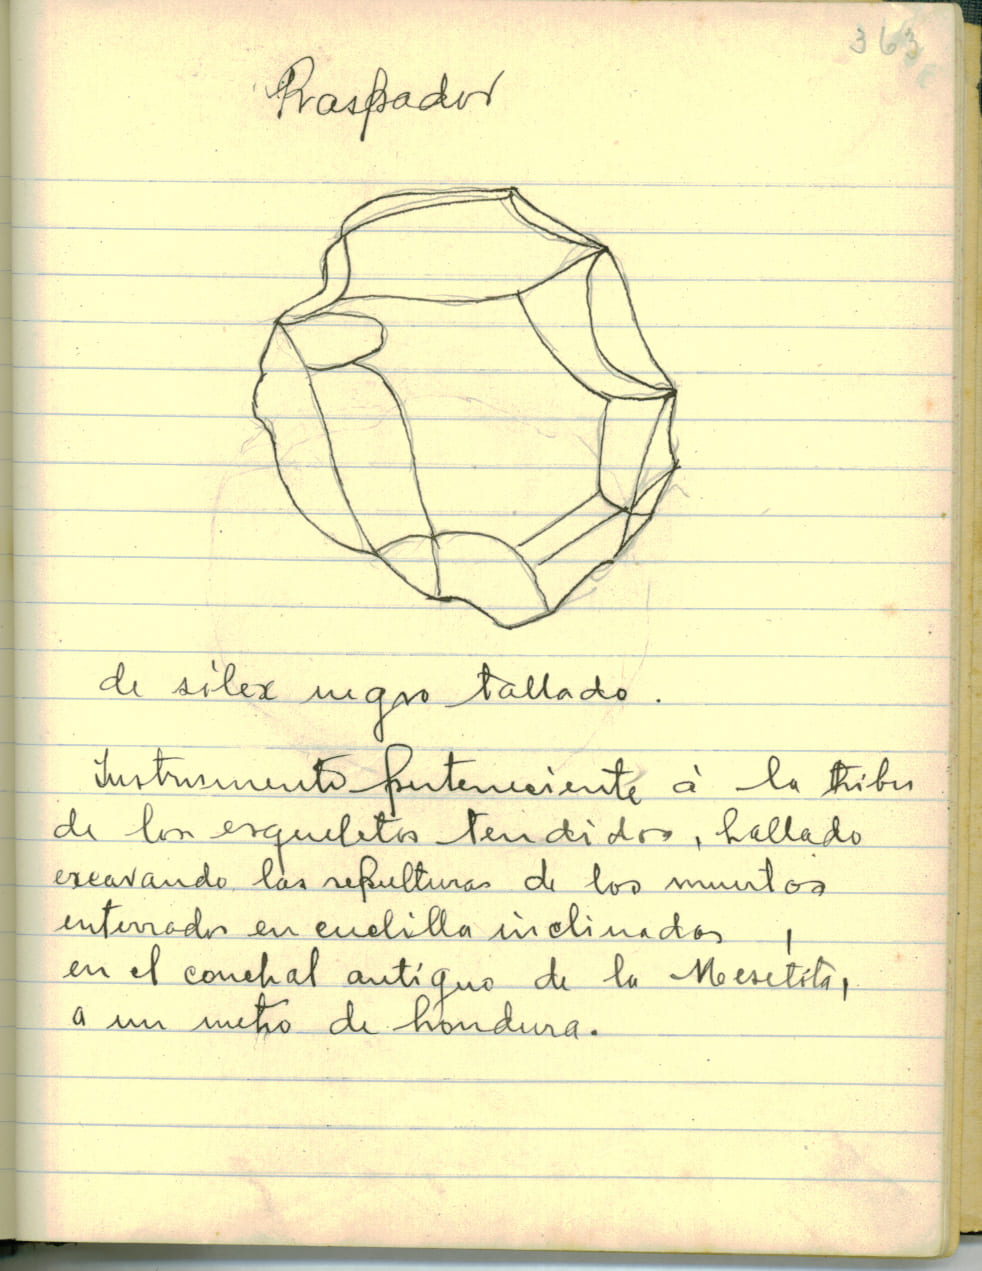 363
Raspador
de sílex negro tallado.
Instrumento perteneciente à la tribu
de los esqueletos tendidos, hallado
excavando las sepulturas de los muertos
enterrados en cuclilla inclinados,
en el conchal antiguo de la Mesetita,
a un metro de hondura.